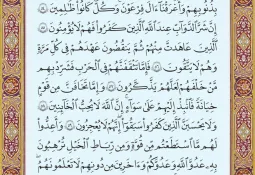 بِذُنُوبِهِمْ وَأَغْرَقْنَا ءَالَ فِرْعَوْنَ وَكُلٌّ كَانُوا۟ ظَٰلِمِينَ ۝
إِنَّ شَرَّ ٱلدَّوَآبِّ عِندَ ٱللَّهِ ٱلَّذِينَ كَفَرُوا۟ فَهُمْ لَا يُؤْمِنُونَ ۝
ٱلَّذِينَ عَٰهَدتَّ مِنْهُمْ ثُمَّ يَنقُضُونَ عَهْدَهُمْ فِى كُلِّ مَرَّةٍ
وَهُمْ لَا يَتَّقُونَ ۝ فَإِمَّا تَثْقَفَنَّهُمْ فِى ٱلْحَرْبِ فَشَرِّدْ بِهِم
مَّنْ خَلْفَهُمْ لَعَلَّهُمْ يَذَّكَّرُونَ ۝ وَإِمَّا تَخَافَنَّ مِن قَوْمٍ
خِيَانَةً فَٱنۢبِذْ إِلَيْهِمْ عَلَىٰ سَوَآءٍ إِنَّ ٱللَّهَ لَا يُحِبُّ ٱلْخَآئِنِينَ ۝
وَلَا يَحْسَبَنَّ ٱلَّذِينَ كَفَرُوا۟ سَبَقُوٓا۟ إِنَّهُمْ لَا يُعْجِزُونَ ۝ وَأَعِدُّوا۟
لَهُم مَّا ٱسْتَطَعْتُم مِّن قُوَّةٍ وَمِن رِّبَاطِ ٱلْخَيْلِ تُرْهِبُونَ
بِهِۦ عَدُوَّ ٱللَّهِ وَعَدُوَّكُمْ وَءَاخَرِينَ مِن دُونِهِمْ لَا تَعْلَمُونَهُمُ